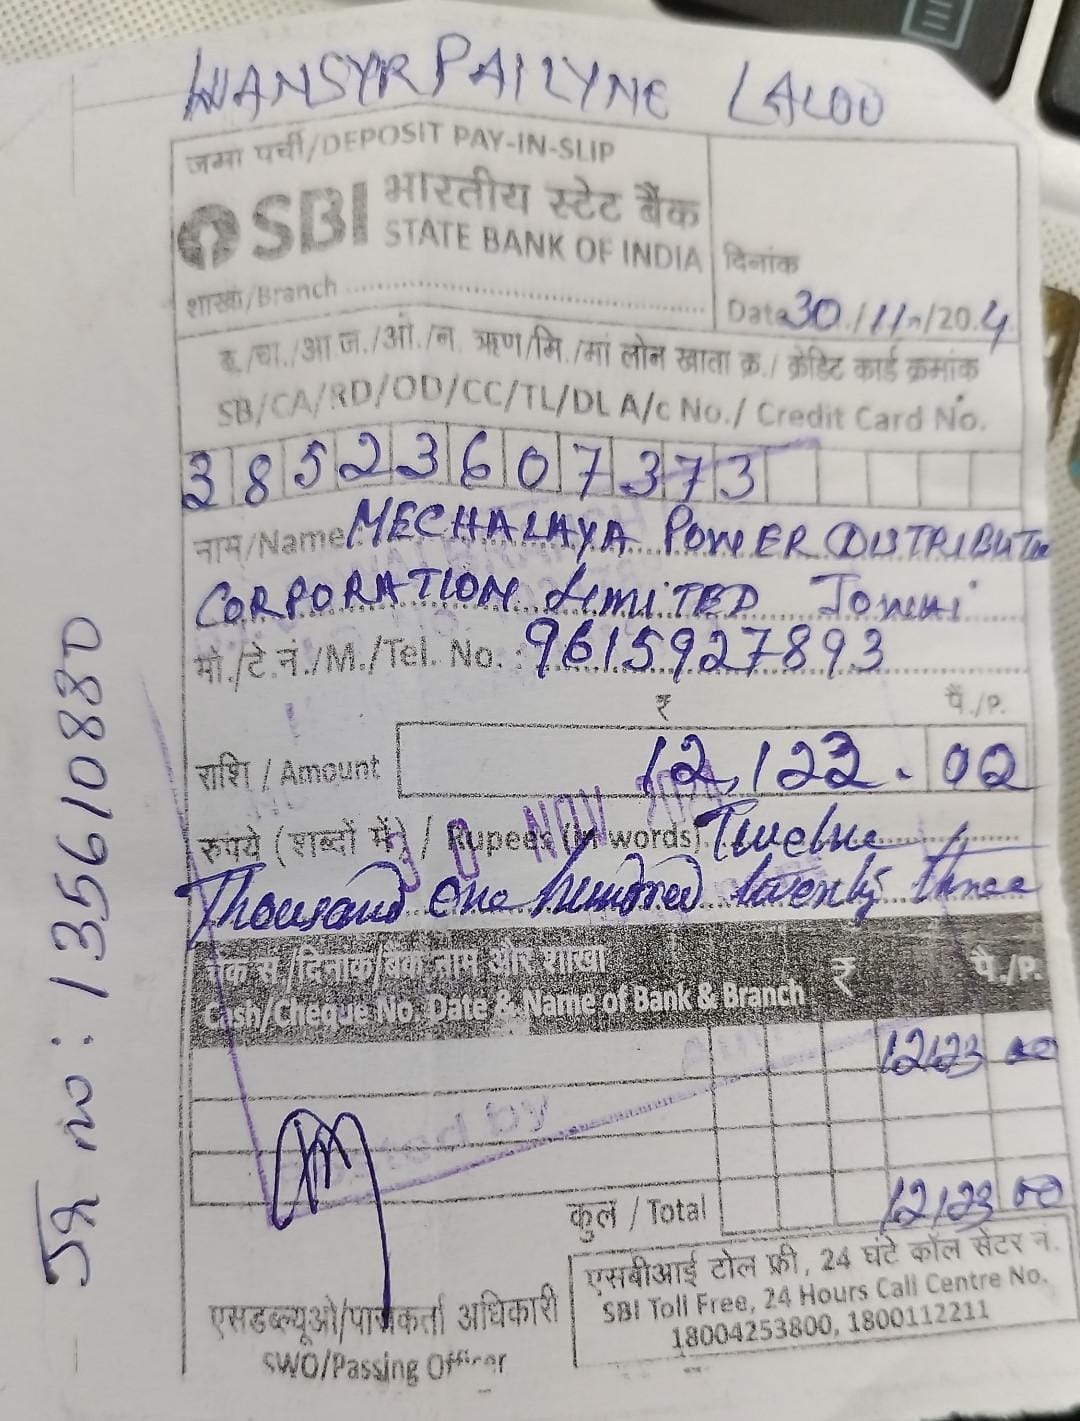 WANSYRPAILYNE LALOO
जमा पर्ची/DEPOSIT PAY-IN-SLIP
SBI भारतीय स्टेट बैंक
STATE BANK OF INDIA
शाखा/Branch
दिनांक
Date 30/11/2024
ब./चा./आ.ज./ओ./न. ऋण/मि./मां लोन खाता क्र./ क्रेडिट कार्ड क्रमांक
SB/CA/RD/OD/CC/TL/DL A/c No./ Credit Card No.
38523607373
नाम/Name MEGHALAYA POWER DISTRIBUTION
CORPORATION LIMITED Jowai
मो./टे.नं./M./Tel. No. : 9615927893
₹ पै./P.
राशि / Amount 12,123.00
रुपये (शब्दों में) / Rupees (in words) Twelve
30 NOV
Thousand one hundred twenty three
चेक सं./दिनांक/बैंक नाम और शाखा ₹ पै./P.
Cash/Cheque No. Date & Name of Bank & Branch
12123 00
कुल / Total 12123 00
एसडब्ल्यूओ/पासकर्ता अधिकारी
SWO/Passing Officer
एसबीआई टोल फ्री, 24 घंटे कॉल सेंटर नं.
SBI Toll Free, 24 Hours Call Centre No.
18004253800, 1800112211
no: 135610880